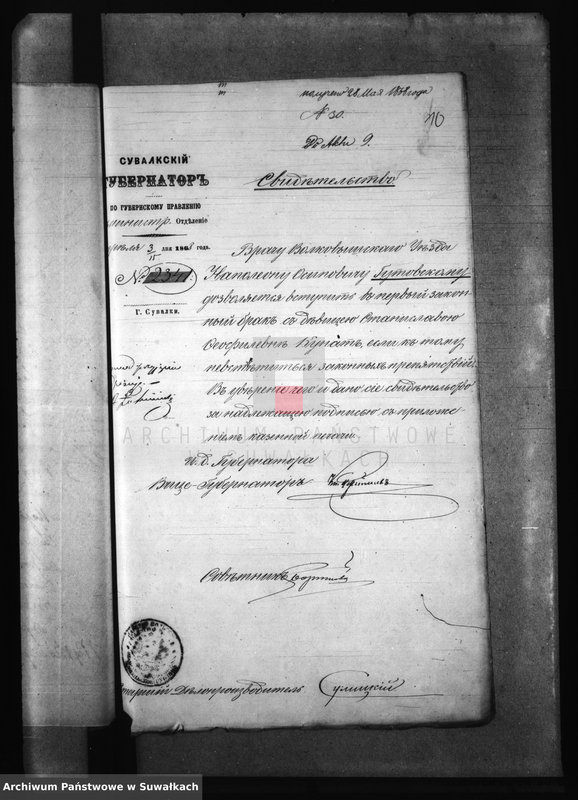 получено 28 Мая 1888 года
№ 30.
10
Къ Акту 9.
СУВАЛКСКІЙ
ГУБЕРНАТОРЪ
ПО ГУБЕРНСКОМУ ПРАВЛЕНІЮ
Отдѣленіе
3/15 дня 1888 года.
№ 2341
Г. Сувалки.
Свидѣтельство
Врачу Волковышскаго Уѣзда
Наполеону Осиповичу Гутовскому
дозволяется вступить въ первый закон-
ный бракъ съ дѣвицею Станиславою
Ѳеофилевн. Кунатъ, если къ тому,
невстрѣтиться законныхъ препятствій.
Въ увѣреніе чего и дано сіе свидѣтельство
за надлежащею подписью съ приложе-
ніемъ казенной печати.
И. д. Губернатора
Вице-Губернаторъ
Совѣтникъ
Старшій Дѣлопроизводитель
ARCHIWUM PAŃSTWOWE
W SUWAŁKACH
Archiwum Państwowe w Suwałkach